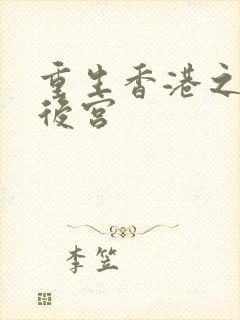 重生香港之
後宮
李笠